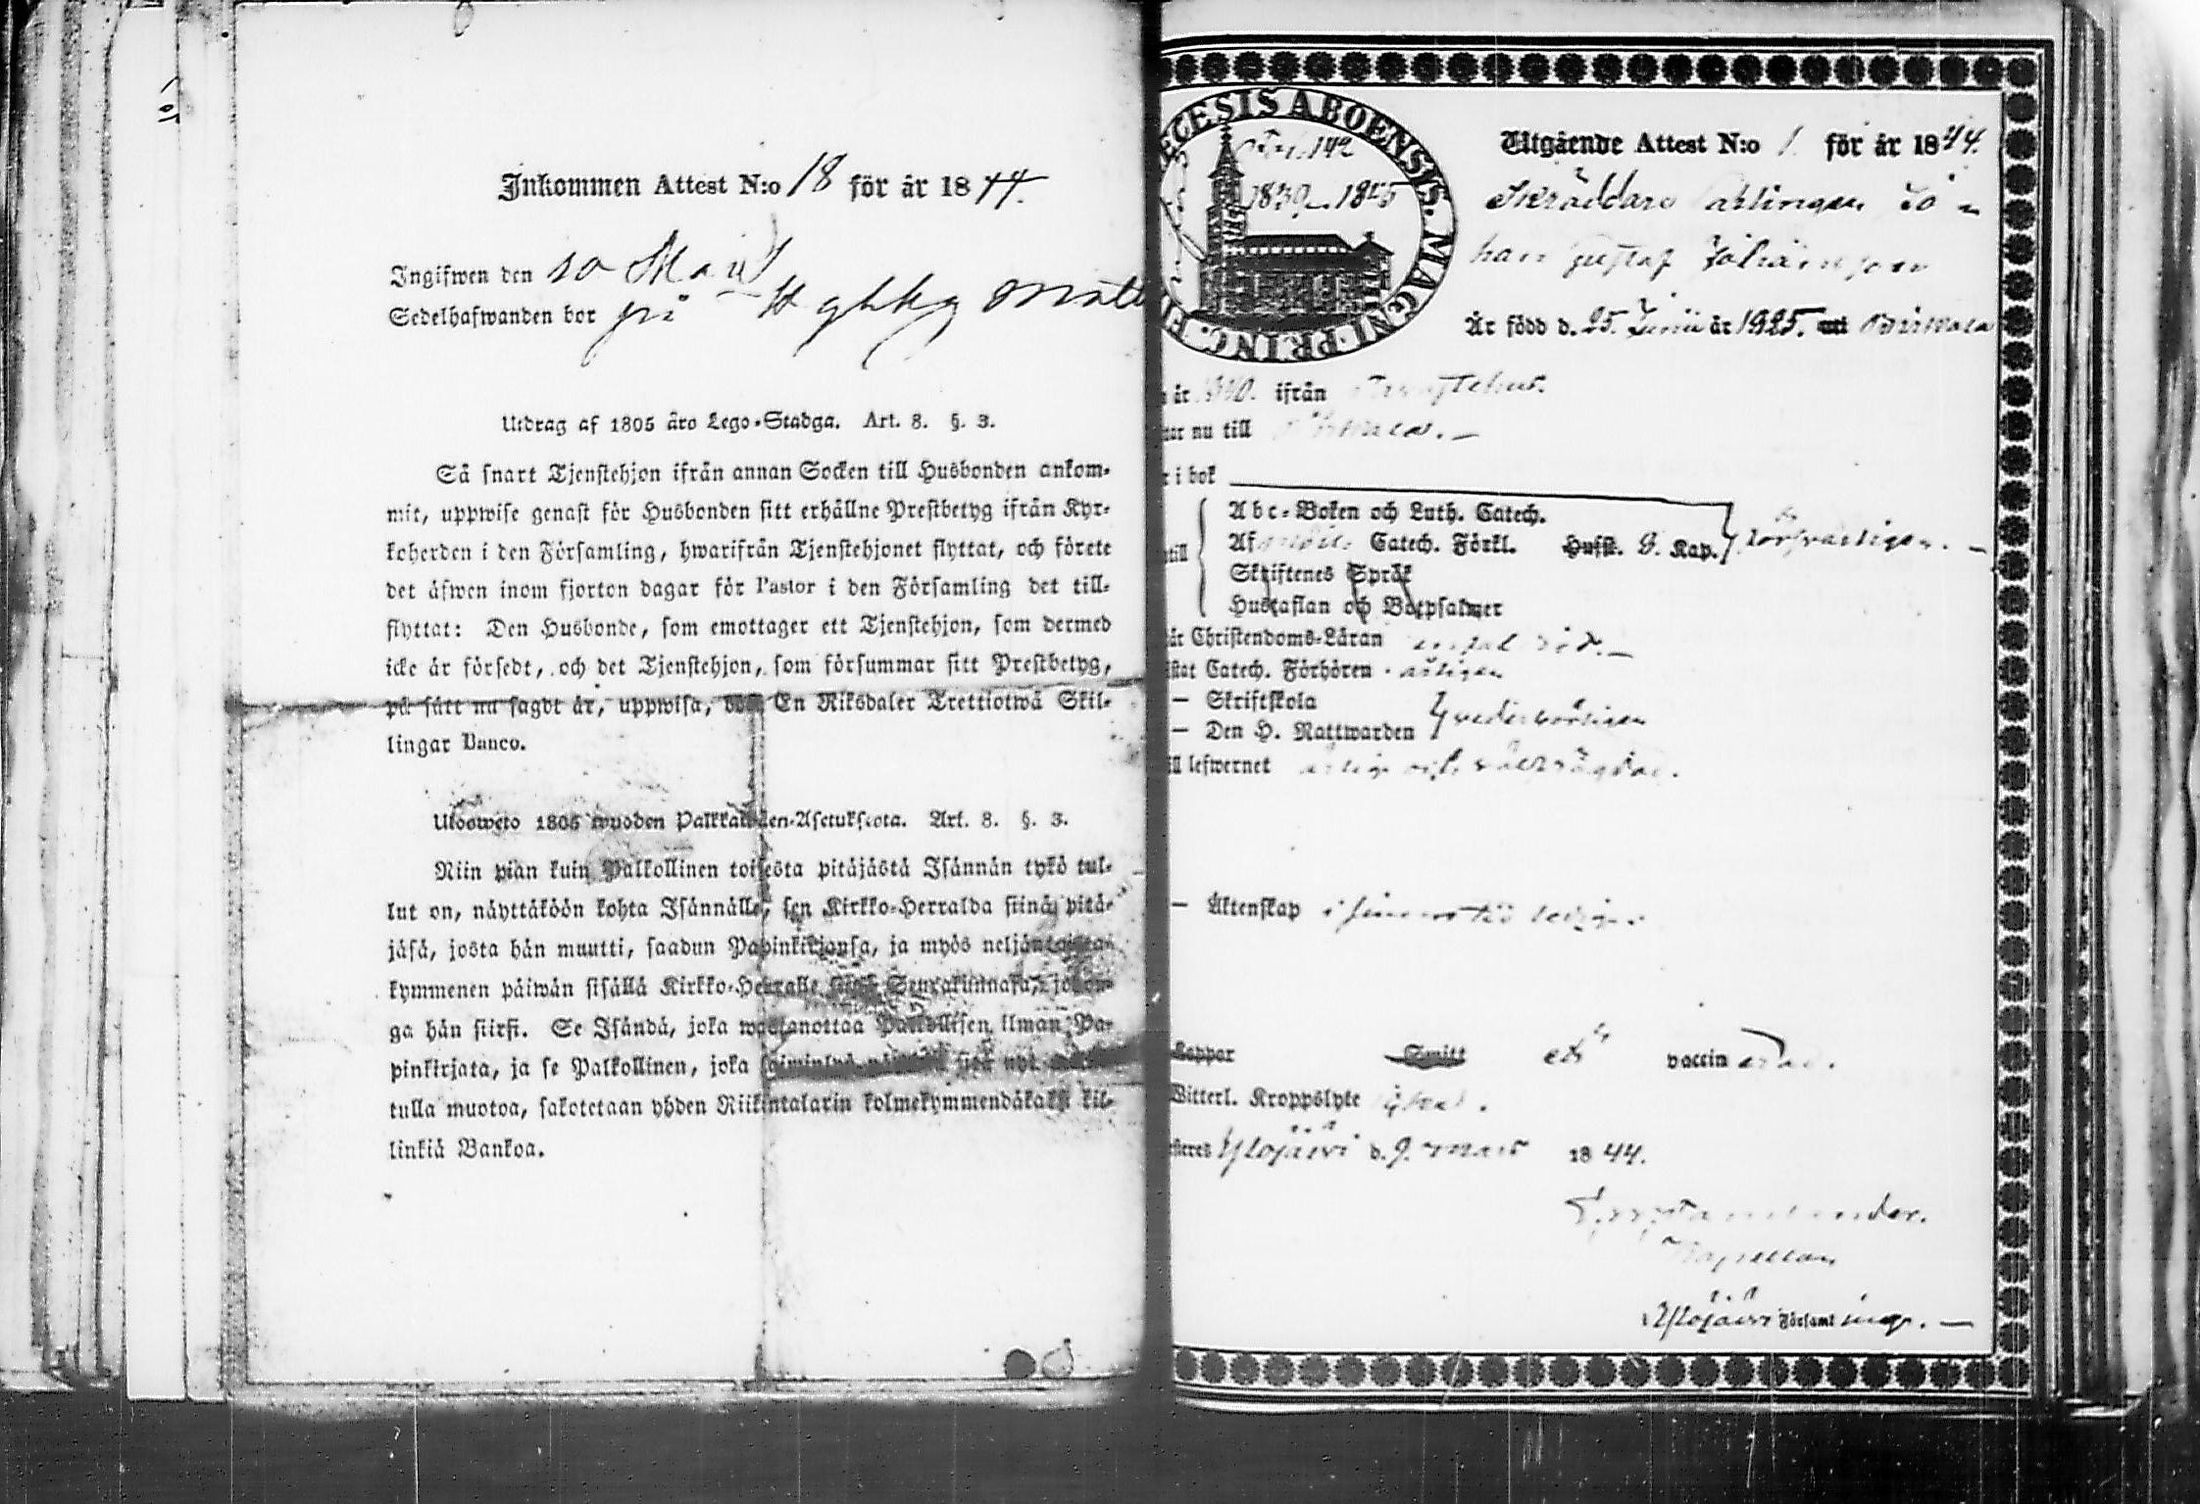 Inkommen Attest N:o 18 för år 1844.
Ingifwen den 10 Maii
Sedelhafwanden bor på
Utdrag af 1805 åro Lego-Stadga. Art. 8. §. 3.
Så snart Tjenstehjon ifrån annan Socken till Husbonden ankom-
mit, uppwise genast för Husbonden sitt erhållne Prestbetyg ifrån Kyr-
koherden i den Församling, hwarifrån Tjenstehjonet flyttat, och förete
det äfwen inom fjorton dagar för Pastor i den Församling det till-
flyttat: Den Husbonde, som emottager ett Tjenstehjon, som dermed
icke är försedt, och det Tjenstehjon, som försummar sitt Prestbetyg,
på sätt nu sagdt är, uppwisa, En Riksdaler Trettiotwå Skil-
lingar Banco.
Ulosweto 1805 wuoden Palkkaisten-Asetuksesta. Art. 8. §. 3.
Niin pian kuin Palkollinen toisesta pitäjästä Isännän tykö tul-
lut on, näyttäköön kohta Isännälle, sen Kirkko-Herralda siinä pitä-
jäsä, josta hän muutti, saadun Papinkirjansa, ja myös neljäntoista-
kymmenen päiwän sisällä Kirkko-Herralle siinä Seurakunnasa, johon-
ga hän siirsi. Se Isändä, joka wastanottaa Palkollisen ilman Pa-
pinkirjata, ja se Palkollinen, joka
tulla muotoa, sakotetaan yhden Riikintalarin kolmekymmendäkaksi kil-
linkiä Bankoa.
ECESIS ABOENSIS. MAGNI. PRINC.
142
1839-1845
Utgående Attest N:o 1 för år 1844.
Skräddare Lärlingen Jo-
han Gustaf Johansson
Är född d. 25. Junii år 1825. uti Birkala
år ifrån
nu till
i bok
Abc-Boken och Luth. Catech.
Af Catech. Förkl. Husst. 9. Kap. försvarligen.
Skriftenes Språk
Hustaflan och Botpsalmer
är Christendoms-Läran
Catech. Förhören årligen
— Skriftskola
— Den H. Nattwarden vederbörligen
lefwernet
— Äktenskap
Koppor Smitt vaccinerad.
Witterl. Kroppslyte
Ylöjärvi d. 9. Mars 1844.
Kapellan
Ylöjärvi Församling. —